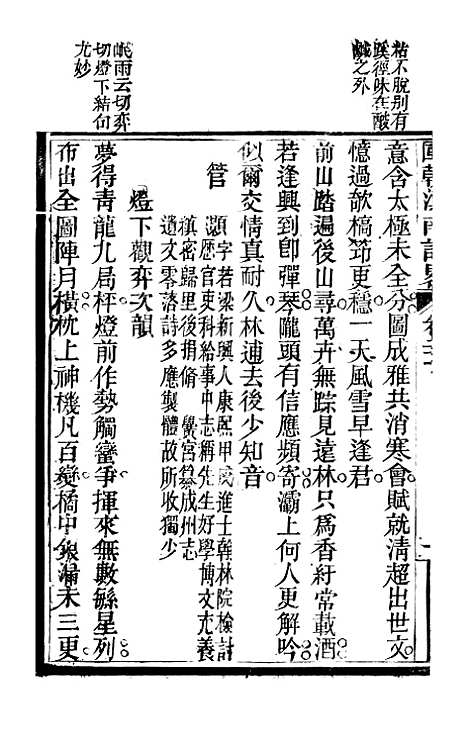 粘不脫别有
蹊徑味在酸
鹹之外
岷雨云切弈
切燈下結句
尤妙
國朝滇南詩畧
意含太極未全分圖成雅共消寒會賦就清超出世文
憶過欹橋筇更穩一天風雪早逢君
前山踏遍後山尋萬卉無踪見遠林只為香紆常載酒
若逢興到卽彈琴隴頭有信應頻寄灞上何人更解吟
似爾交情真耐久林逋去後少知音
管
灝字若梁新興人康熙甲戌進士翰林院檢討
歷官吏科給事中志稱先生好學博文尤養
縝密歸里後捐脩黌宮纂成州志
遺文零落詩多應製體故所收獨少
燈下觀弈次韻
夢得靑龍九局枰燈前作勢觸蠻爭揮來無數緜星列
布出全圖陣月橫枕上神機凡百變橘中銀漏未三更